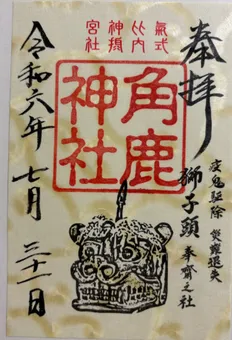 奉拝
疫鬼駆除 災難退失
獅子頭 奉齋之社
式内社
氣比神宮摂社
角鹿神社
令和六年 七月 三十一日